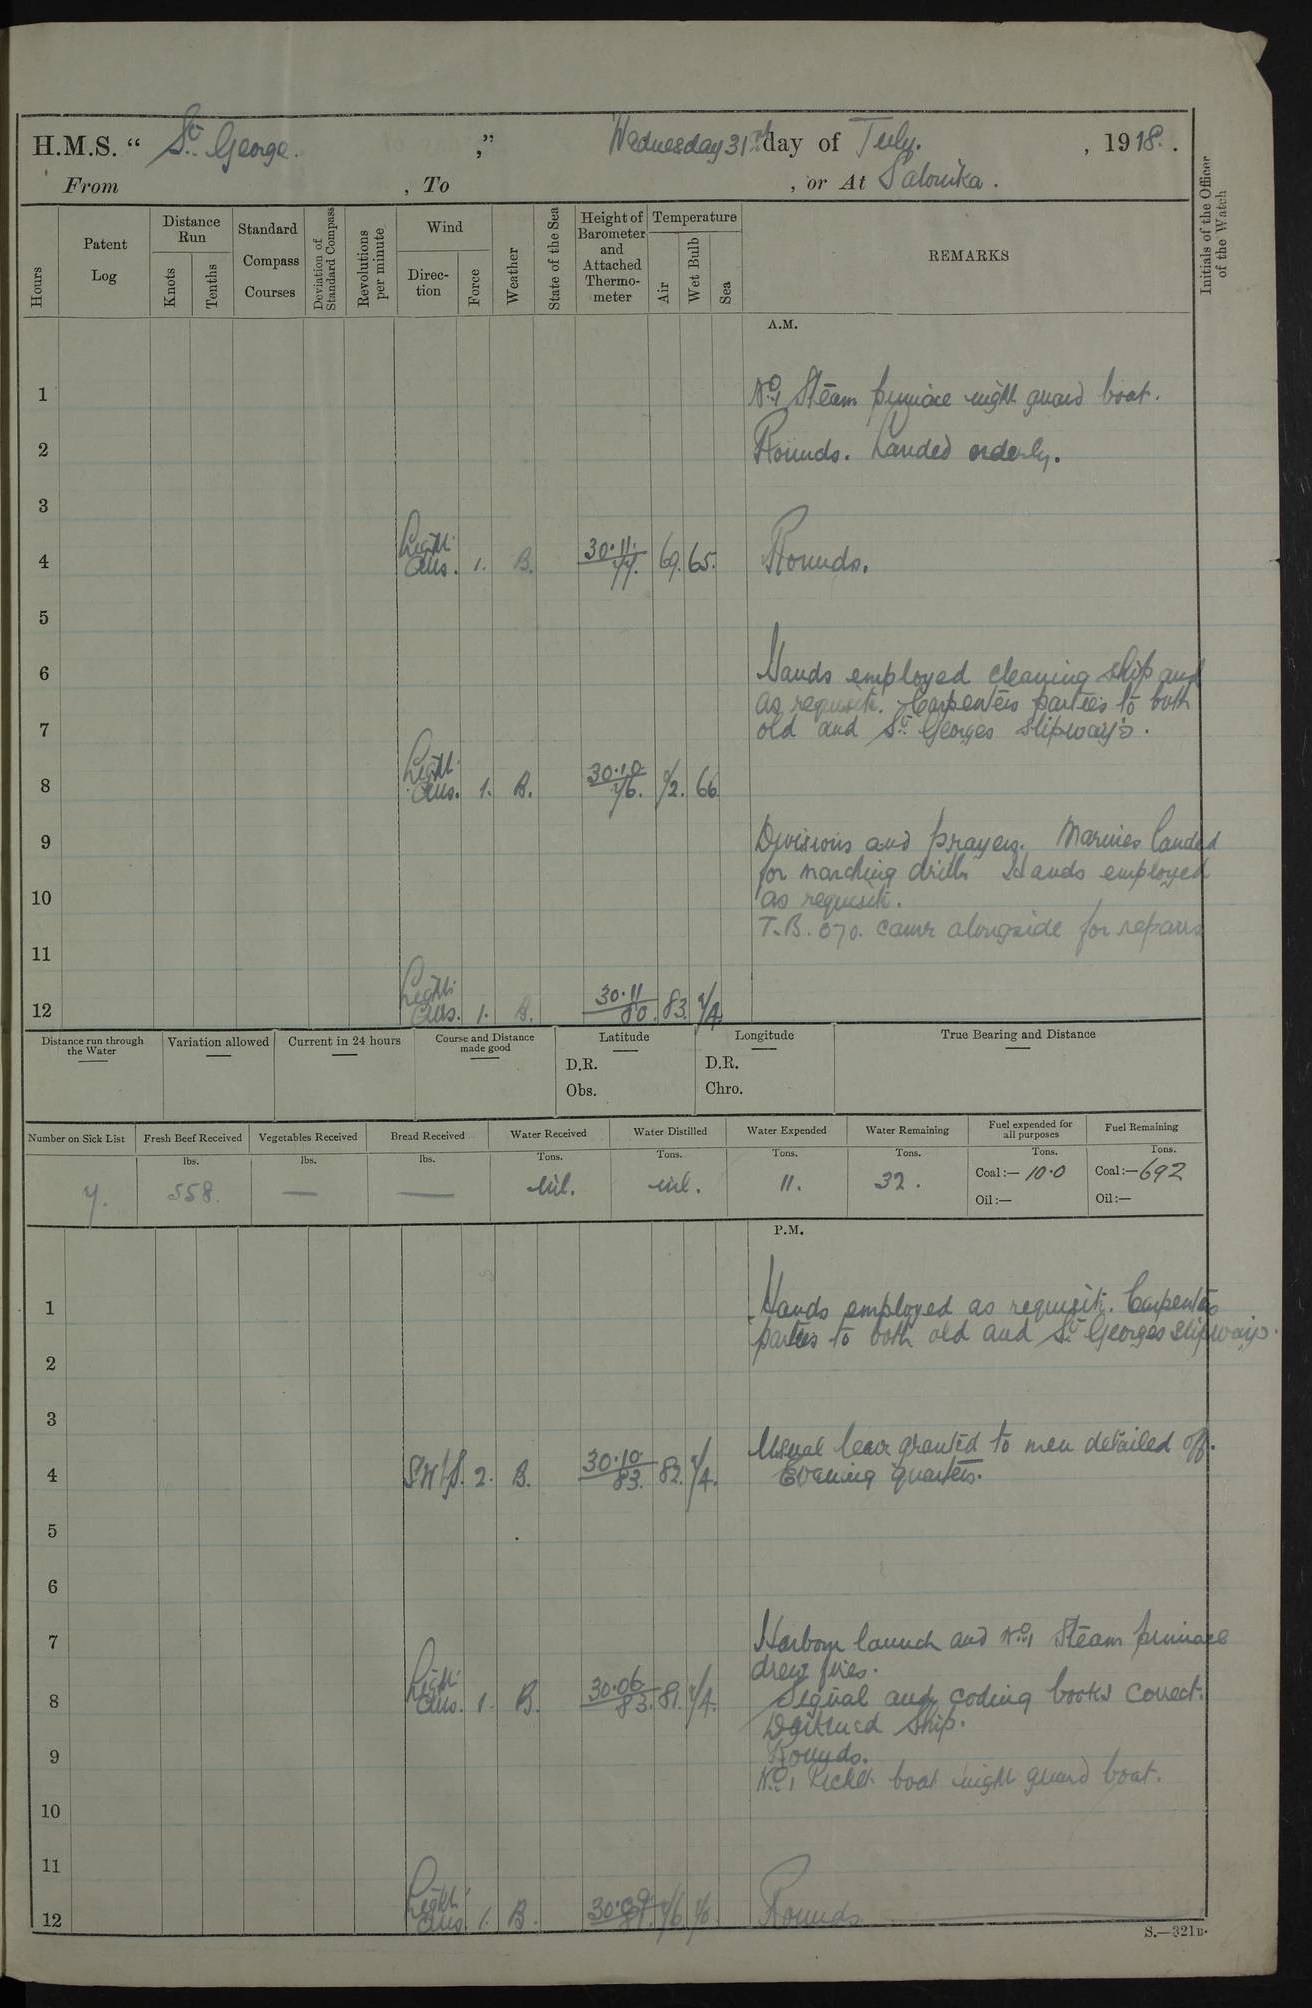 H.M.S. “ St. George. ,” Wednesday 31st day of July. , 1918.
From , To , or At Salonika.
Hours
Patent Log
Distance Run
Knots
Tenths
Standard Compass Courses
Deviation of Standard Compass
Revolutions per minute
Wind
Direc-tion
Force
Weather
State of the Sea
Height of Barometer and Attached Thermo-meter
Temperature
Air
Wet Bulb
Sea
REMARKS
Initials of the Officer of the Watch
A.M.
1 No. 1 Steam pinnace night guard boat.
2 Rounds. Landed orderly.
3
4 Light Airs. 1. B. 30.11. 77. 69. 65. Rounds.
5
6 Hands employed cleaning ship and
as requisite. Carpenters parties to both
7 old and St. Georges slipways.
8 Light Airs. 1. B. 30.10 76. 72. 66
9 Divisions and prayers. Marines landed
for marching drill. Hands employed
10 as requisite.
T.B. 070. came alongside for repairs
11
12 Light Airs. 1. B. 30.11 80. 83. 74.
Distance run through the Water
Variation allowed
Current in 24 hours
Course and Distance made good
Latitude
D.R.
Obs.
Longitude
D.R.
Chro.
True Bearing and Distance
Number on Sick List
Fresh Beef Received
Vegetables Received
Bread Received
Water Received
Water Distilled
Water Expended
Water Remaining
Fuel expended for all purposes
Fuel Remaining
lbs. lbs. lbs. Tons. Tons. Tons. Tons. Tons. Tons.
7. 558. — — Nil. Nil. 11. 32. Coal:— 10.0 Coal:—692
Oil:— Oil:—
P.M.
1 Hands employed as requisite. Carpenters
parties to both old and St. Georges slipways.
2
3
Usual leave granted to men detailed off.
4 S W/S. 2. B. 30.10 83. 82. 74. Evening quarters.
5
6
7 Harbour launch and No. 1 Steam pinnace
drew fires.
8 Light Airs. 1. B. 30.06 83. 81. 74. Signal and coding books correct.
Darkened Ship.
9 Rounds.
No. 1 Picket boat night guard boat.
10
11
12 Light Airs. 1. B. 30.09 81. 76. 70 Rounds
S.—321B.